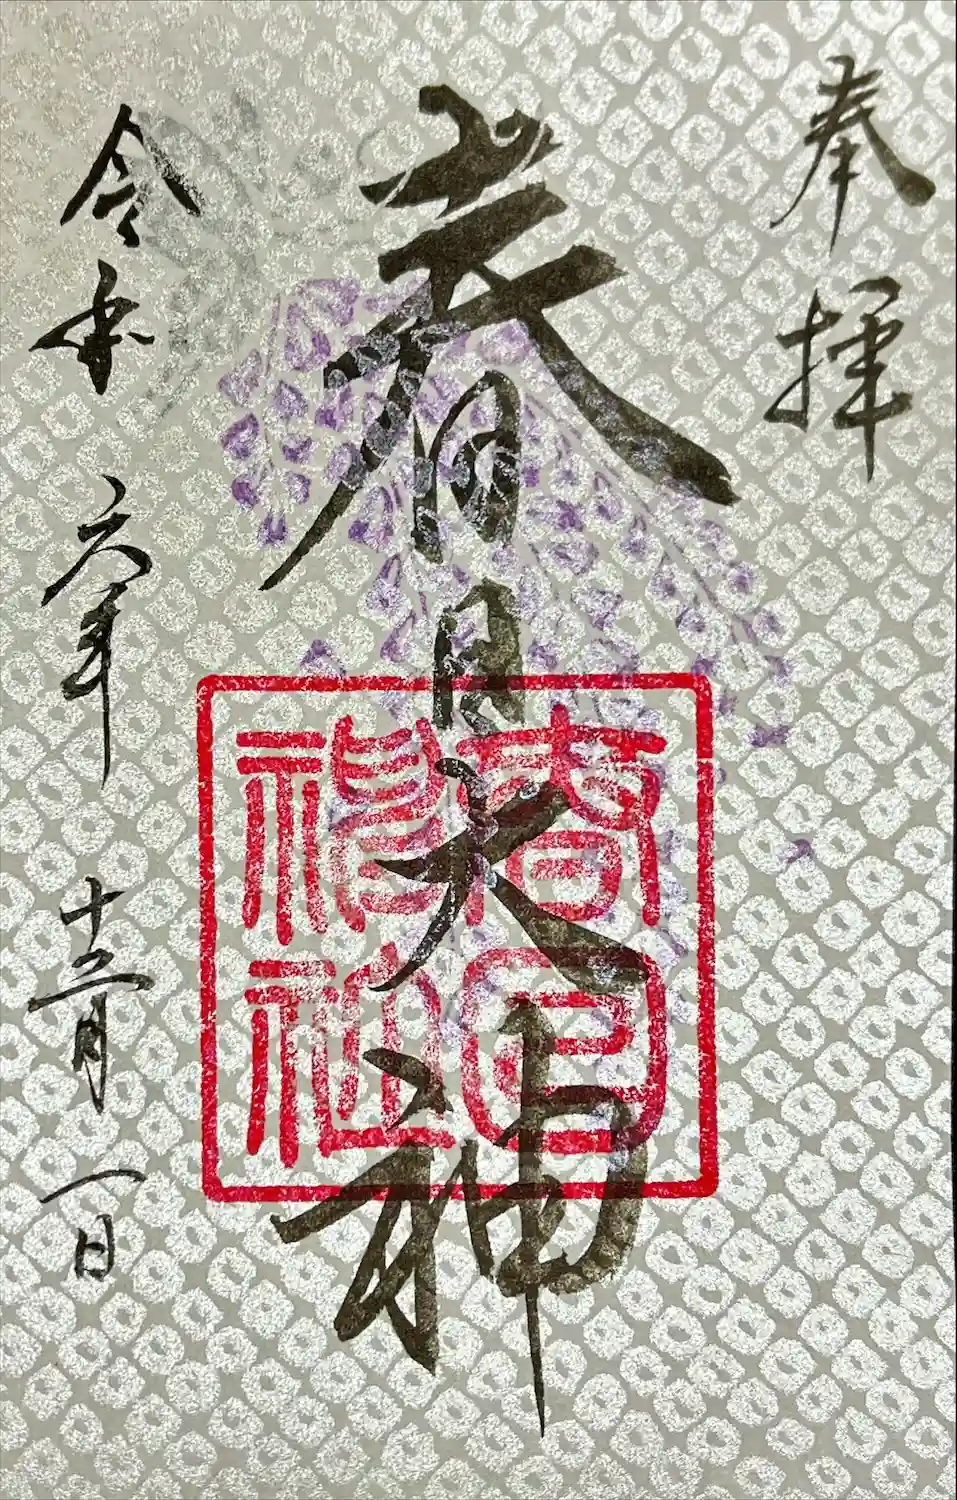 奉拝
春日大神
春日
神社
令和六年十二月一日